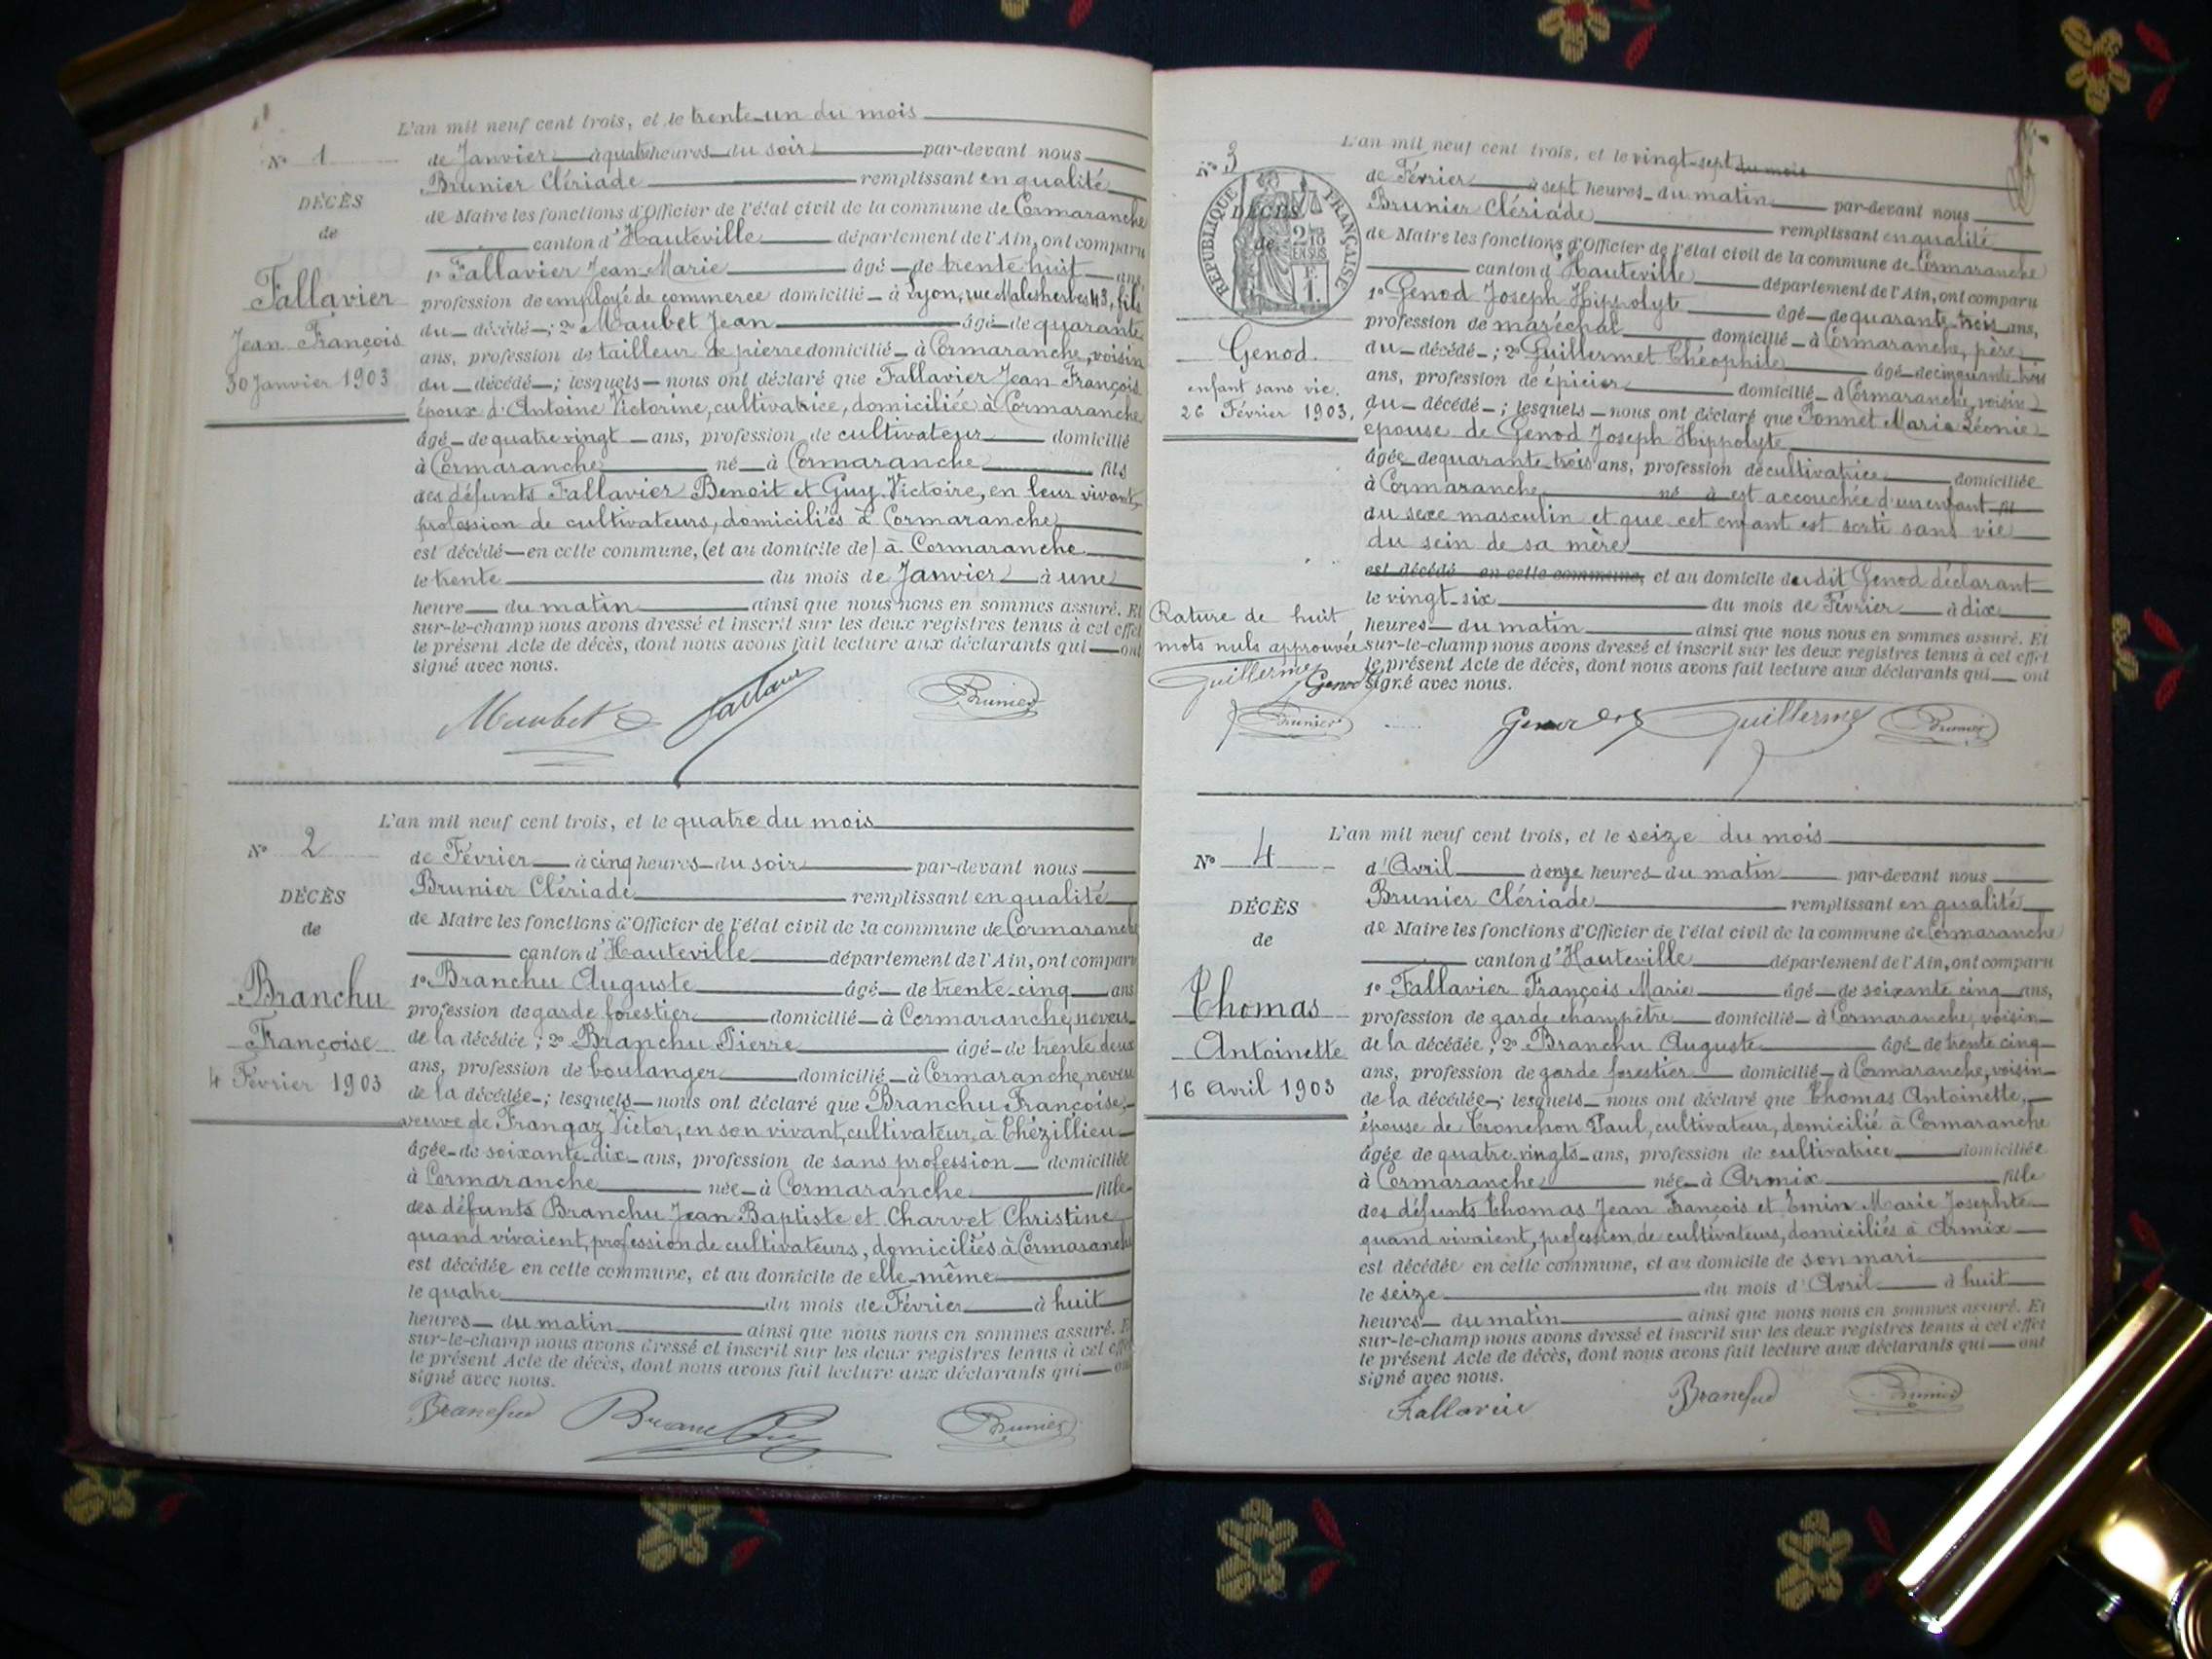 L'an mil neuf cent trois, et le trente-un du mois
N° 1
de Janvier à quatre heures du soir par-devant nous
Brunier Clériade remplissant en qualité
DÉCÈS
de Maire les fonctions d'Officier de l'état civil de la commune de Cormaranche
de
canton d'Hauteville département de l'Ain, ont comparu
1° Fallavier Jean-Marie âgé de trente huit ans,
Fallavier
profession de employé de commerce domicilié à Lyon, rue Malesherbes 43, fils
du décédé; 2° Maubet Jean âgé de quarante
Jean François
ans, profession de tailleur de pierre domicilié à Cormaranche, voisin
30 Janvier 1903
du décédé; lesquels nous ont déclaré que Fallavier Jean François
époux d'Antoine Victorine, cultivatrice, domiciliée à Cormaranche
âgé de quatre vingt ans, profession de cultivateur domicilié
à Cormaranche né à Cormaranche fils
des défunts Fallavier Benoit et Guy Victoire, en leur vivant,
profession de cultivateurs, domiciliés à Cormaranche
est décédé en cette commune, (et au domicile de) à Cormaranche
le trente du mois de Janvier à une
heure du matin ainsi que nous nous en sommes assuré. Et
sur-le-champ nous avons dressé et inscrit sur les deux registres tenus à cet effet
le présent Acte de décès, dont nous avons fait lecture aux déclarants qui ont
signé avec nous.
Maubet Brunier
L'an mil neuf cent trois, et le quatre du mois
N° 2
de Février à cinq heures du soir par-devant nous
Brunier Clériade remplissant en qualité
DÉCÈS
de Maire les fonctions d'Officier de l'état civil de la commune de Cormaranche
de
canton d'Hauteville département de l'Ain, ont comparu
1° Branchu Auguste âgé de trente-cinq ans
Branchu
profession de garde forestier domicilié à Cormaranche, neveu
Françoise
de la décédée; 2° Branchu Pierre âgé de trente deux
ans, profession de boulanger domicilié à Cormaranche, neveu
4 Février 1903
de la décédée; lesquels nous ont déclaré que Branchu Françoise,
veuve de Frangaz Victor, en son vivant, cultivateur, à Thézillieu
âgée de soixante-dix ans, profession de sans profession domiciliée
à Cormaranche née à Cormaranche fille
des défunts Branchu Jean Baptiste et Charvet Christine
quand vivaient, profession de cultivateurs, domiciliés à Cormaranche
est décédée en cette commune, et au domicile de elle-même
le quatre du mois de Février à huit
heures du matin ainsi que nous nous en sommes assuré. Et
sur-le-champ nous avons dressé et inscrit sur les deux registres tenus à cet effet
le présent Acte de décès, dont nous avons fait lecture aux déclarants qui ont
signé avec nous.
Branchu Branchu Brunier
L'an mil neuf cent trois, et le vingt-sept du mois
N° 3
de Février à sept heures du matin par-devant nous
RÉPUBLIQUE FRANÇAISE
2/10 EN SUS
F. 1.
DÉCÈS
de
Brunier Clériade remplissant en qualité
de Maire les fonctions d'Officier de l'état civil de la commune de Cormaranche
canton d'Hauteville département de l'Ain, ont comparu
1° Genod Joseph Hippolyte âgé de quarante-trois ans,
profession de maréchal domicilié à Cormaranche, père
Genod.
du décédé; 2° Guillermet Théophile âgé de cinquante-trois
enfant sans vie.
ans, profession de épicier domicilié à Cormaranche, voisin
26 Février 1903.
du décédé; lesquels nous ont déclaré que Ponnet Marie Léonie
épouse de Genod Joseph Hippolyte
âgée de quarante-trois ans, profession de cultivatrice domiciliée
à Cormaranche né à est accouchée d'un enfant fil
du sexe masculin et que cet enfant est sorti sans vie
du sein de sa mère
est décédé en cette commune, et au domicile dudit Genod déclarant
le vingt-six du mois de Février à dix
heures du matin ainsi que nous nous en sommes assuré. Et
sur-le-champ nous avons dressé et inscrit sur les deux registres tenus à cet effet
le présent Acte de décès, dont nous avons fait lecture aux déclarants qui ont
signé avec nous.
Rature de huit
mots nuls approuvée
Guillermet Genod
Brunier
Genod Guillermet Brunier
L'an mil neuf cent trois, et le seize du mois
N° 4
d'Avril à onze heures du matin par-devant nous
Brunier Clériade remplissant en qualité
DÉCÈS
de Maire les fonctions d'Officier de l'état civil de la commune de Cormaranche
de
canton d'Hauteville département de l'Ain, ont comparu
1° Fallavier François Marie âgé de soixante cinq ans,
Thomas
profession de garde champêtre domicilié à Cormaranche, voisin
Antoinette
de la décédée; 2° Branchu Auguste âgé de trente cinq
ans, profession de garde forestier domicilié à Cormaranche, voisin
16 Avril 1903
de la décédée; lesquels nous ont déclaré que Thomas Antoinette,
épouse de Tronchon Paul, cultivateur, domicilié à Cormaranche
âgée de quatre-vingts ans, profession de cultivatrice domiciliée
à Cormaranche née à Armix fille
des défunts Thomas Jean François et Emin Marie Josephte
quand vivaient, profession de cultivateurs, domiciliés à Armix
est décédée en cette commune, et au domicile de son mari
le seize du mois d'Avril à huit
heures du matin ainsi que nous nous en sommes assuré. Et
sur-le-champ nous avons dressé et inscrit sur les deux registres tenus à cet effet
le présent Acte de décès, dont nous avons fait lecture aux déclarants qui ont
signé avec nous.
Fallavier Branchu Brunier